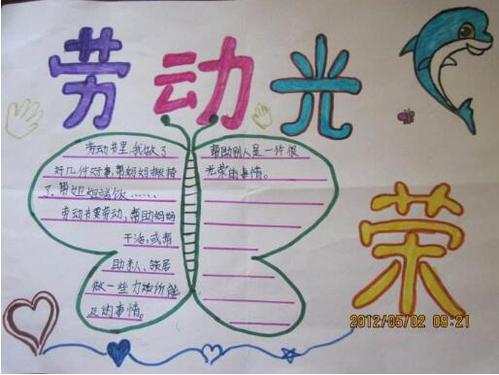 劳动光
荣
劳动节里,我做了
好几件好事,帮妈妈擦椅
了、帮姐姐端饭......
劳动节要劳动、帮助妈妈
干活,或帮
助亲人、邻居
做一些力所能
及的事情。
帮助别人是一件很
光荣的事情。
2012/05/02 09:21